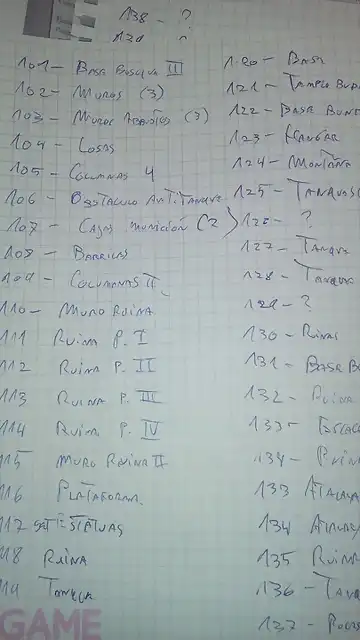 138 - ?
139 ?
101 - Base Bosque II
102 - Muros (3)
103 - Muros Abatidos (3)
104 - Losas
105 - Columnas 4
106 - Obstaculo Antitanque
107 - Cajas munición (2)
108 - Barricas
109 - Columnas II
110 - Muro Ruina
111 Ruina P. I
112 Ruina P. II
113 Ruina P. III
114 Ruina P. IV
115 Muro Ruina II
116 Plataforma
117 Estatuas
118 Ruina
119 Tanque
120 - Base
121 - Templo
122 - Base
123 - Hangar
124 - Montaña
125 -
126 - ?
127 - Tanque
128 - Tanque
129 - ?
130 - Ruinas
131 - Base
132 - Ruina
133 -
134 - Ruina
133 Atalaya
134 Atalaya
135 Ruina
136 -
137 -
GAME